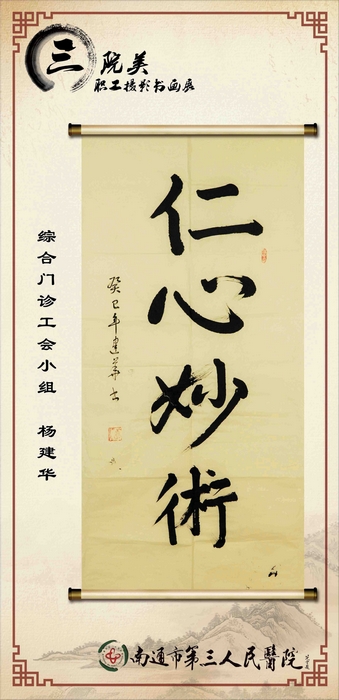 三院美
职工摄影书画展
仁心妙術
癸巳年建华书
综合门诊工会小组 杨建华
南通市第三人民醫院